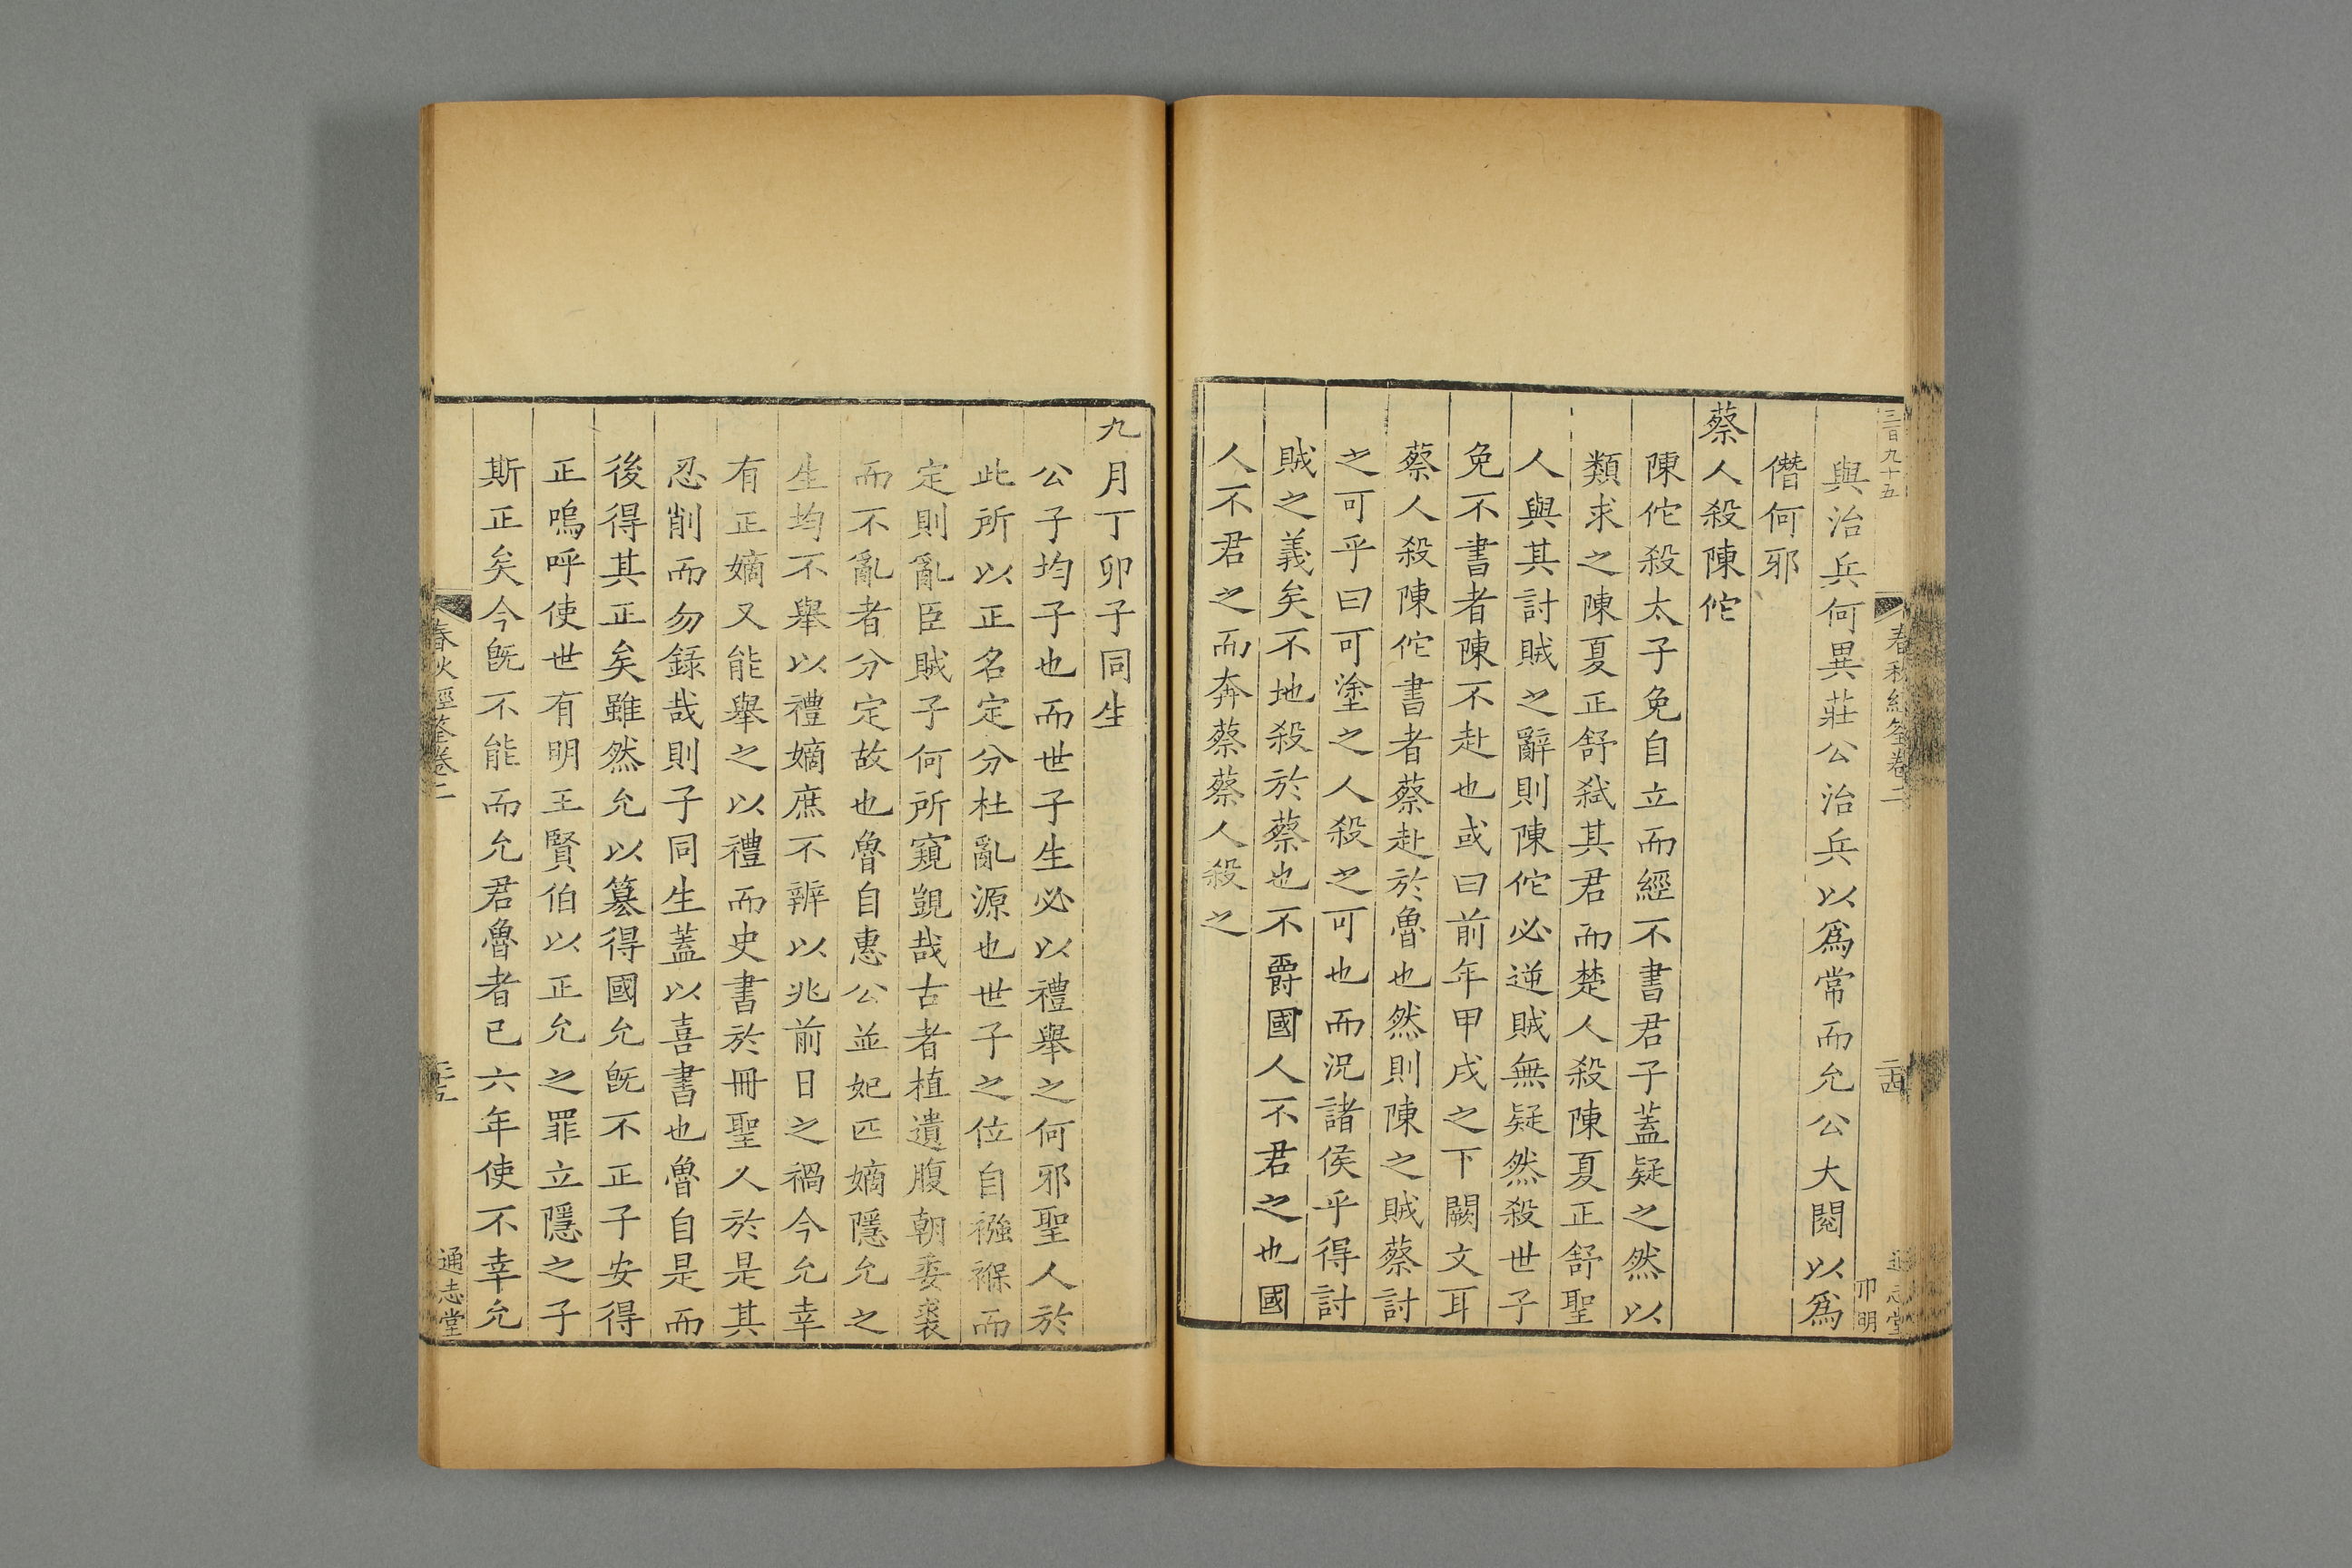 三百九十五
春秋經筌卷二
二十四
通志堂
卬明
與治兵何異莊公治兵以爲常而允公大閱以爲
僭何邪
蔡人殺陳佗
陳佗殺太子免自立而經不書君子蓋疑之然以
類求之陳夏正舒弑其君而楚人殺陳夏正舒聖
人與其討賊之辭則陳佗必逆賊無疑然殺世子
免不書者陳不赴也或曰前年甲戌之下闕文耳
蔡人殺陳佗書者蔡赴於魯也然則陳之賊蔡討
之可乎曰可塗之人殺之可也而況諸侯乎得討
賊之義矣不地殺於蔡也不爵國人不君之也國
人不君之而奔蔡蔡人殺之
九月丁卯子同生
公子均子也而世子生必以禮舉之何邪聖人於
此所以正名定分杜亂源也世子之位自襁褓而
定則亂臣賊子何所窺覬哉古者植遺腹朝委裘
而不亂者分定故也魯自惠公並妃匹嫡隱允之
生均不舉以禮嫡庶不辨以兆前日之禍今允幸
有正嫡又能舉之以禮而史書於冊聖人於是其
忍削而勿錄哉則子同生蓋以喜書也魯自是而
後得其正矣雖然允以篡得國允旣不正子安得
正嗚呼使世有明王賢伯以正允之罪立隱之子
斯正矣今旣不能而允君魯者已六年使不幸允
春秋經筌卷二
二十五
通志堂